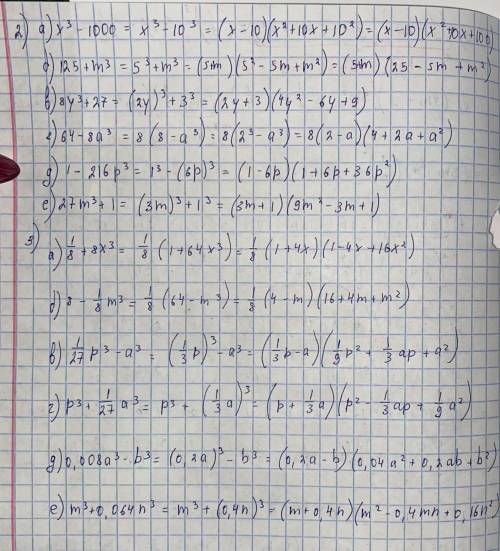 2) а) x³ - 1000 = x³ - 10³ = (x-10)(x²+10x+10²) = (x-10)(x²+10x+100)
б) 125+m³ = 5³+m³ = (5+m)(5²-5m+m²) = (5+m)(25-5m+m²)
в) 8y³+27 = (2y)³+3³ = (2y+3)(4y²-6y+9)
г) 64-8a³ = 8(8-a³) = 8(2³-a³) = 8(2-a)(4+2a+a²)
д) 1-216p³ = 1³-(6p)³ = (1-6p)(1+6p+36p²)
е) 27m³+1 = (3m)³+1³ = (3m+1)(9m²-3m+1)
3)
а) 1/8+8x³ = 1/8(1+64x³) = 1/8(1+4x)(1-4x+16x²)
б) 8-1/8m³ = 1/8(64-m³) = 1/8(4-m)(16+4m+m²)
в) 1/27p³-a³ = (1/3p)³-a³ = (1/3p-a)(1/9p²+1/3ap+a²)
г) p³+1/27a³ = p³+(1/3a)³ = (p+1/3a)(p²-1/3ap+1/9a²)
д) 0,008a³-b³ = (0,2a)³-b³ = (0,2a-b)(0,04a²+0,2ab+b²)
е) m³+0,064n³ = m³+(0,4n)³ = (m+0,4n)(m²-0,4mn+0,16n²)